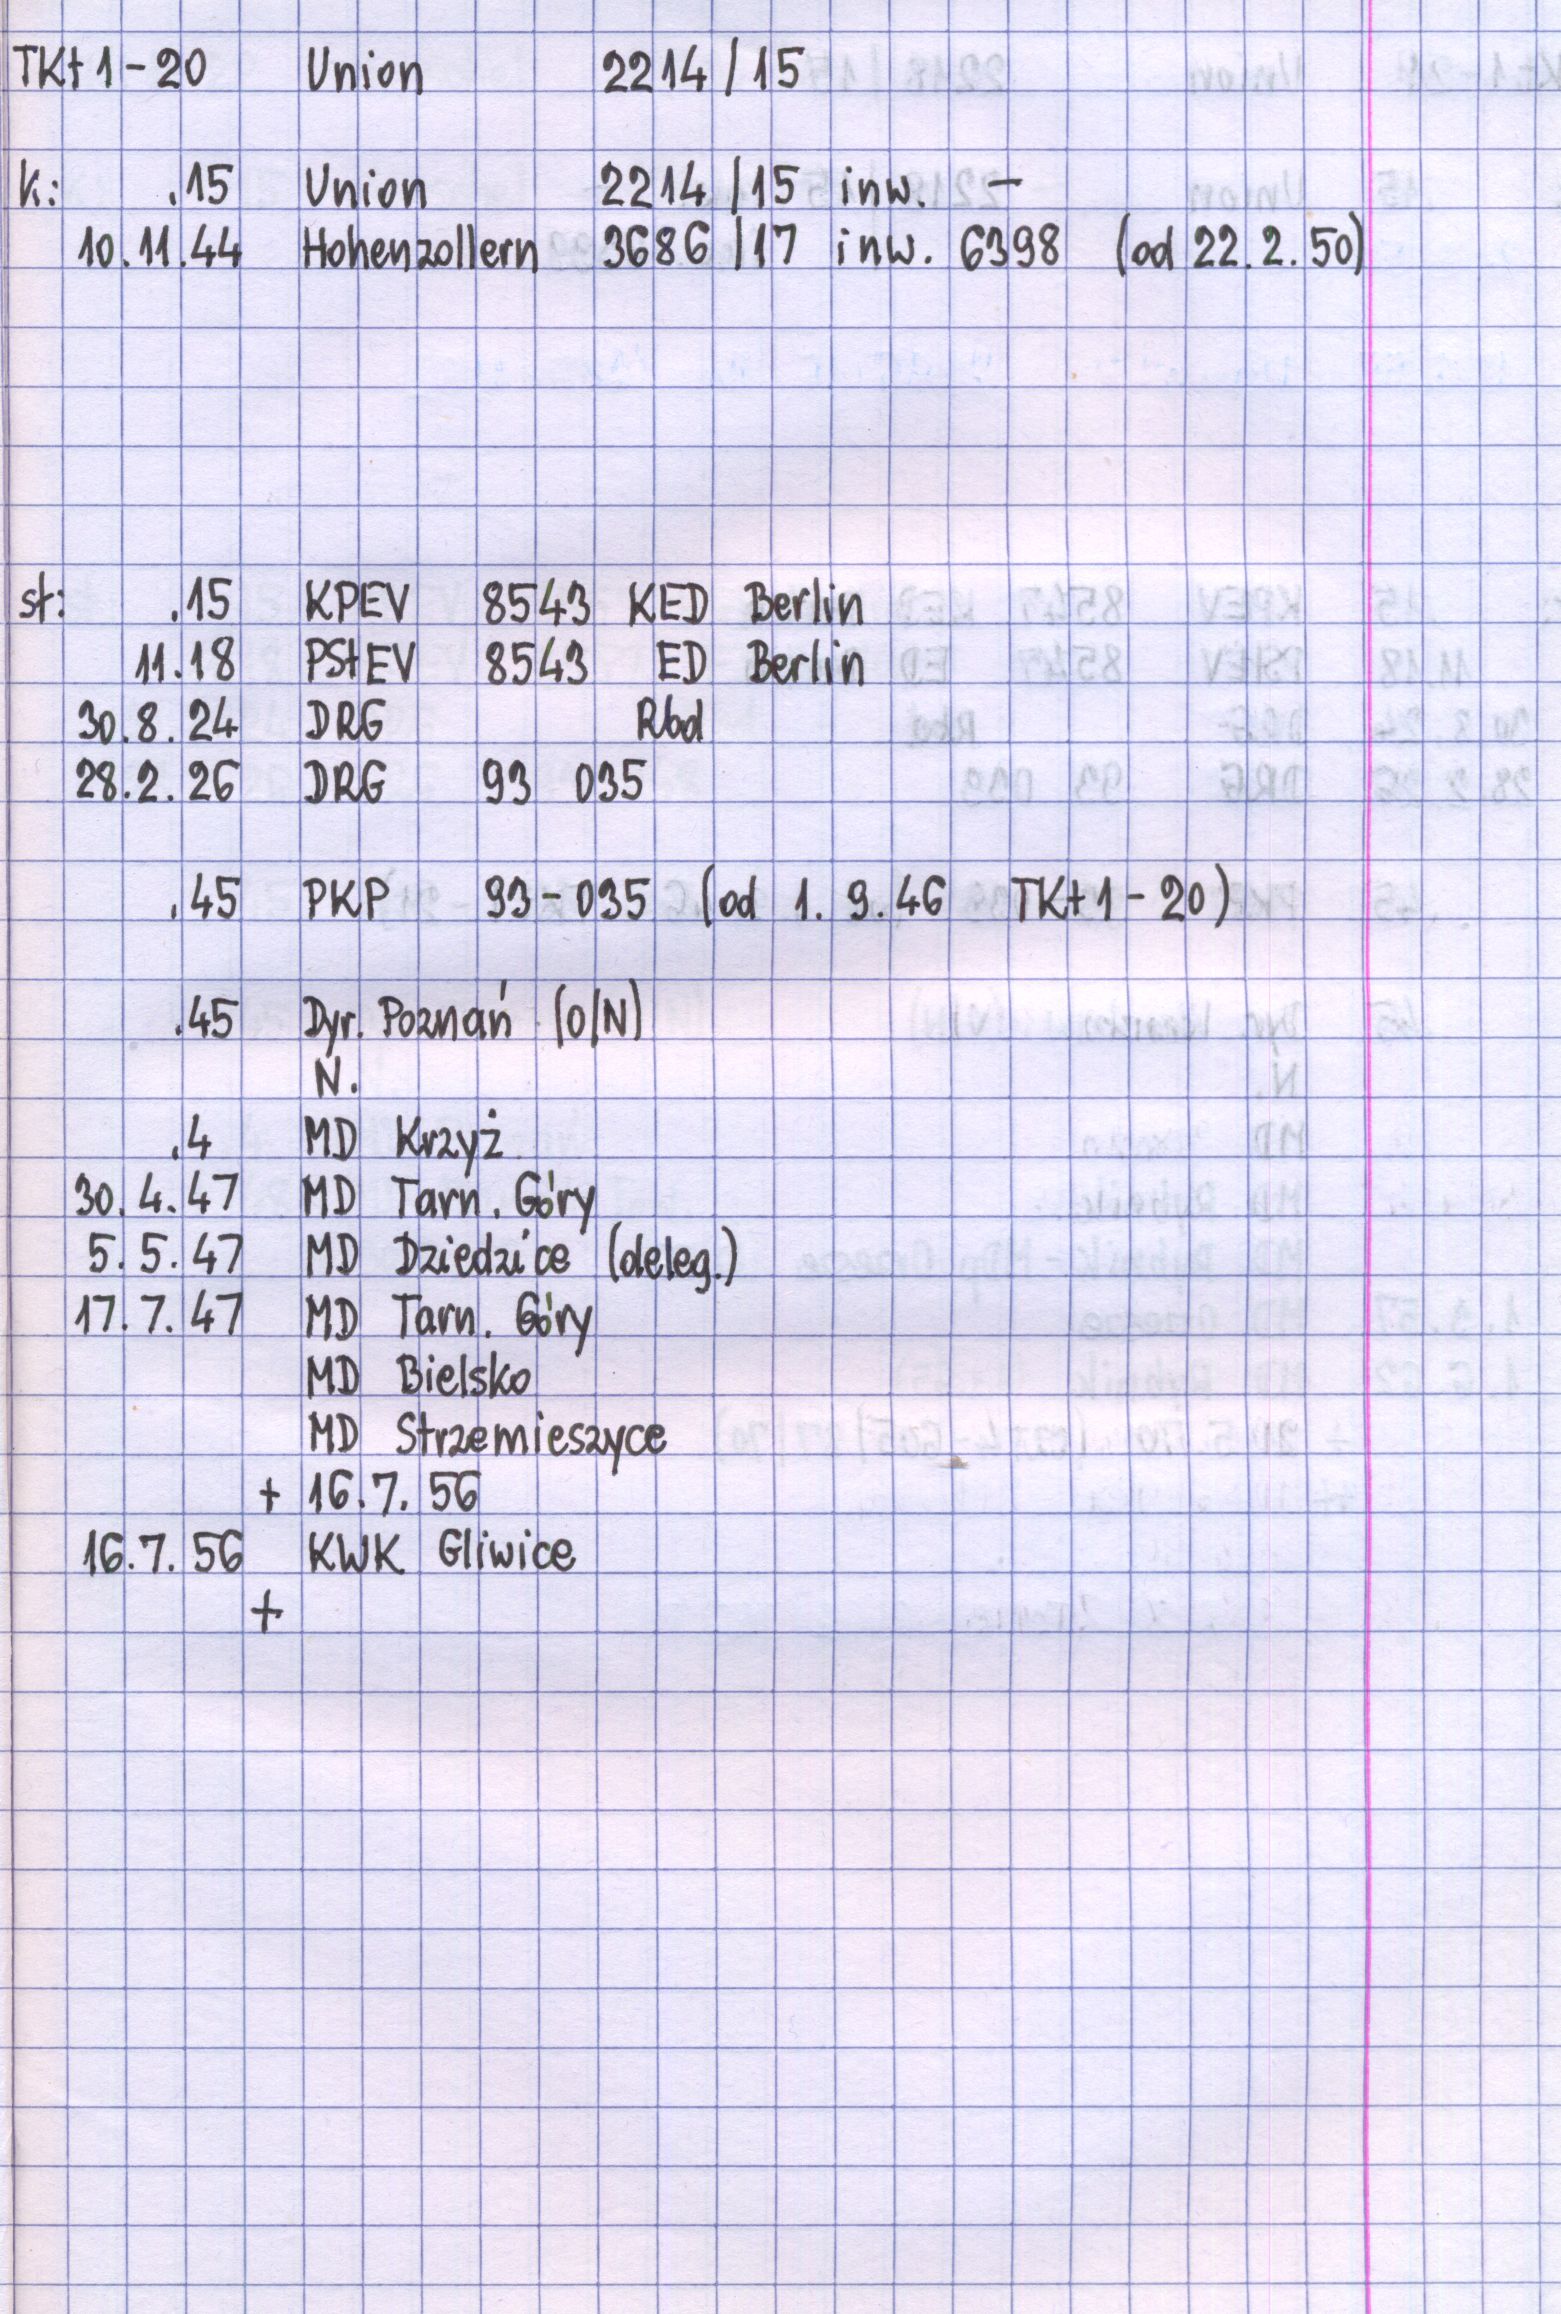 TKt 1 - 20 Union 2214 / 15
k: .15 Union 2214 / 15 inw. –
10.11.44 Hohenzollern 3686 / 17 inw. 6398 (od 22.2.50)
st: .15 KPEV 8543 KED Berlin
11.18 PStEV 8543 ED Berlin
30.8.24 DRG Rbd
28.2.26 DRG 93 035
.45 PKP 93 - 035 (od 1.9.46 TKt 1 - 20)
.45 Dyr. Poznań (O/N)
N.
.4 MD Krzyż
30.4.47 MD Tarn. Góry
5.5.47 MD Dziedzice (deleg.)
17.7.47 MD Tarn. Góry
MD Bielsko
MD Strzemieszyce
+ 16.7.56
16.7.56 KWK Gliwice
+